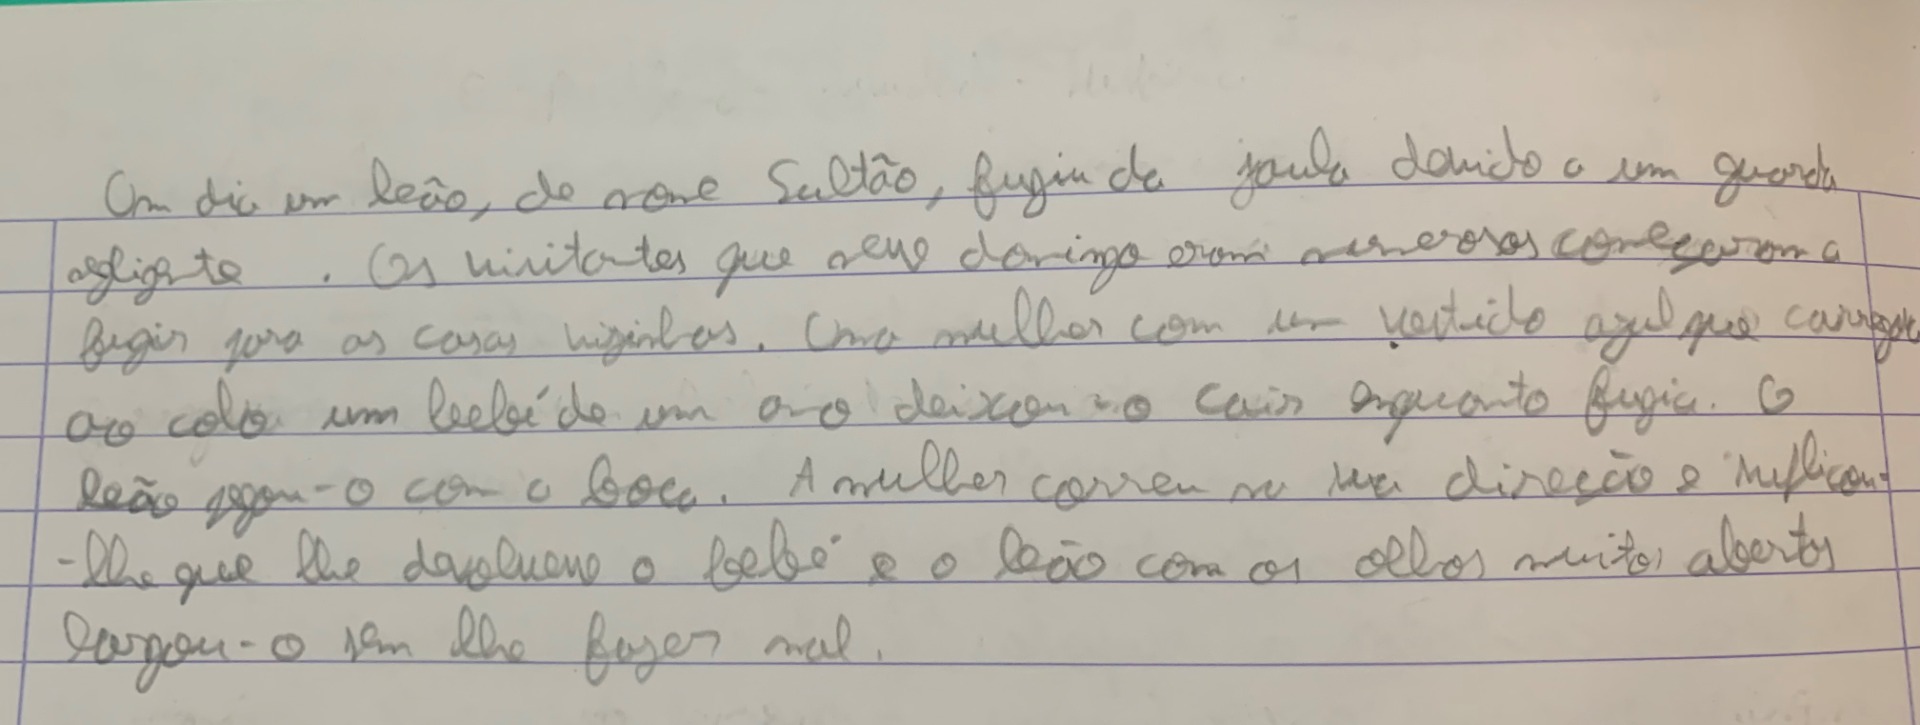 Um dia um leão, de nome Sultão, fugiu da jaula devido a um guarda
negligente. Os visitantes que nesse domingo eram numerosos começaram a
fugir para as casas vizinhas. Uma mulher com um vestido azul que carregava
ao colo um bebé de um ano deixou-o cair enquanto fugia. O
leão pegou-o com a boca. A mulher correu na sua direção e suplicou-
-lhe que lhe devolvesse o bebé e o leão com os olhos muitos abertos
largou-o sem lhe fazer mal.